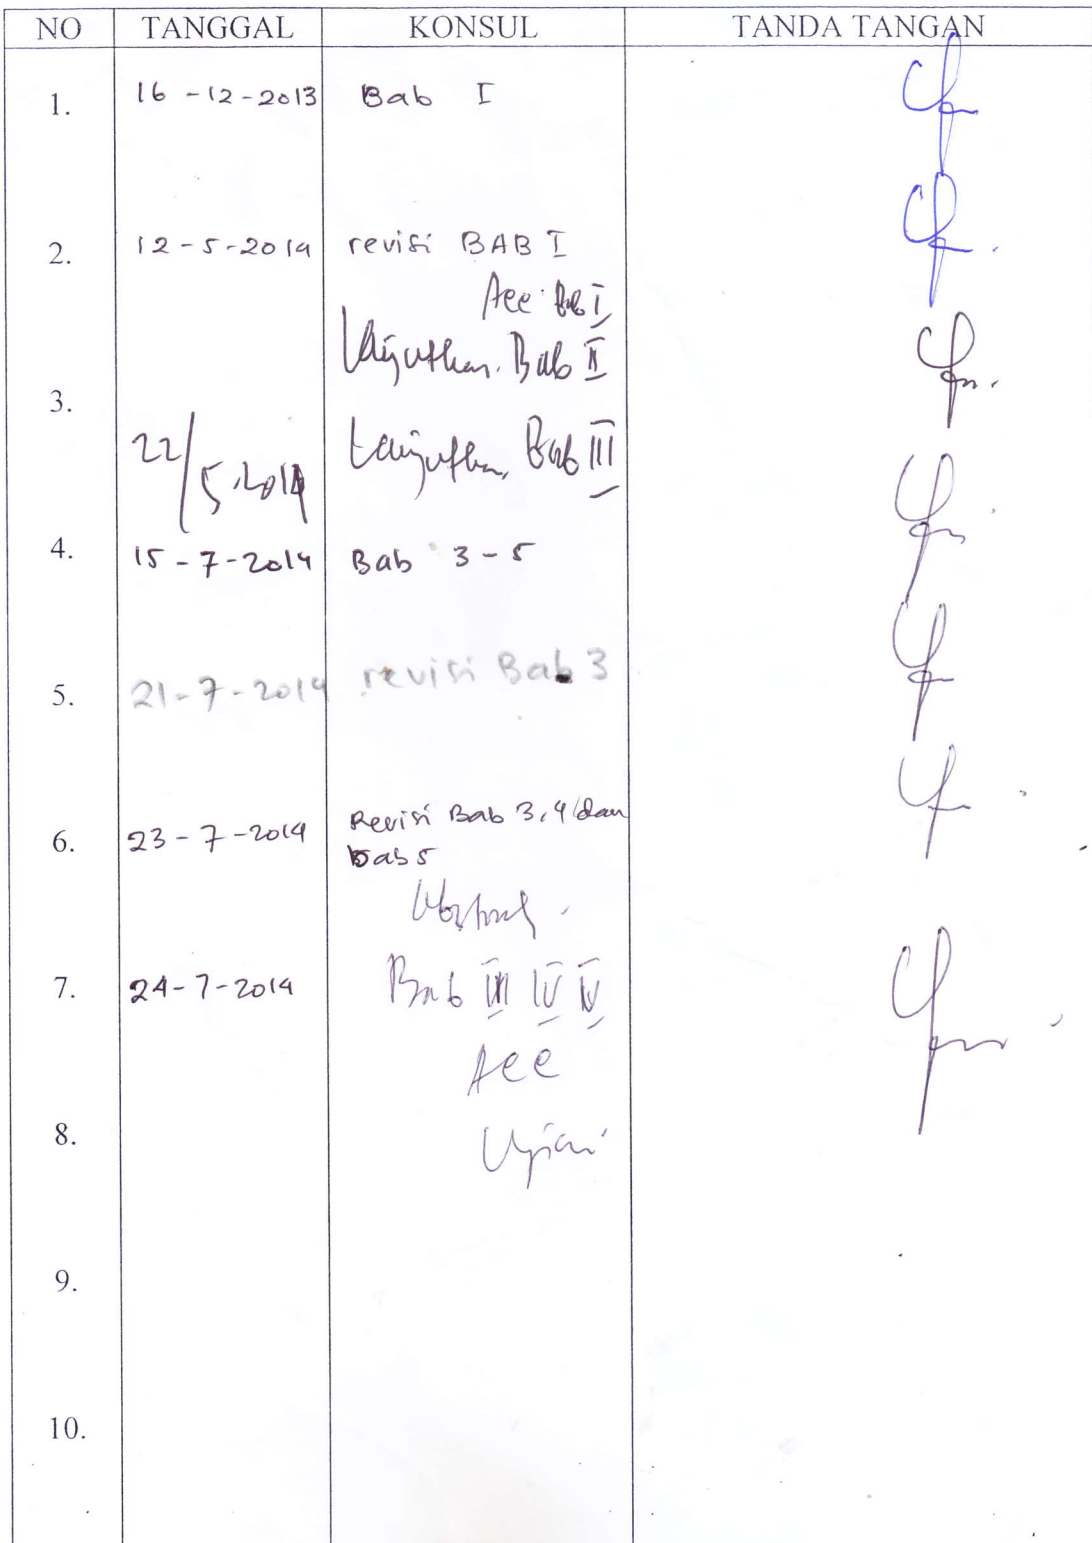 NO TANGGAL KONSUL TANDA TANGAN
1. 16-12-2013 Bab I
2. 12-5-2014 revisi BAB I
Acc Bab I
Lanjutkan Bab II
3.
22/5.2014 Lanjutkan Bab III
4. 15-7-2014 Bab 3-5
5. 21-7-2014 revisi Bab 3
6. 23-7-2014 Revisi Bab 3,4 dan
bab 5
7. 24-7-2014 Bab III IV V
Acc
8. Ujian
9.
10.